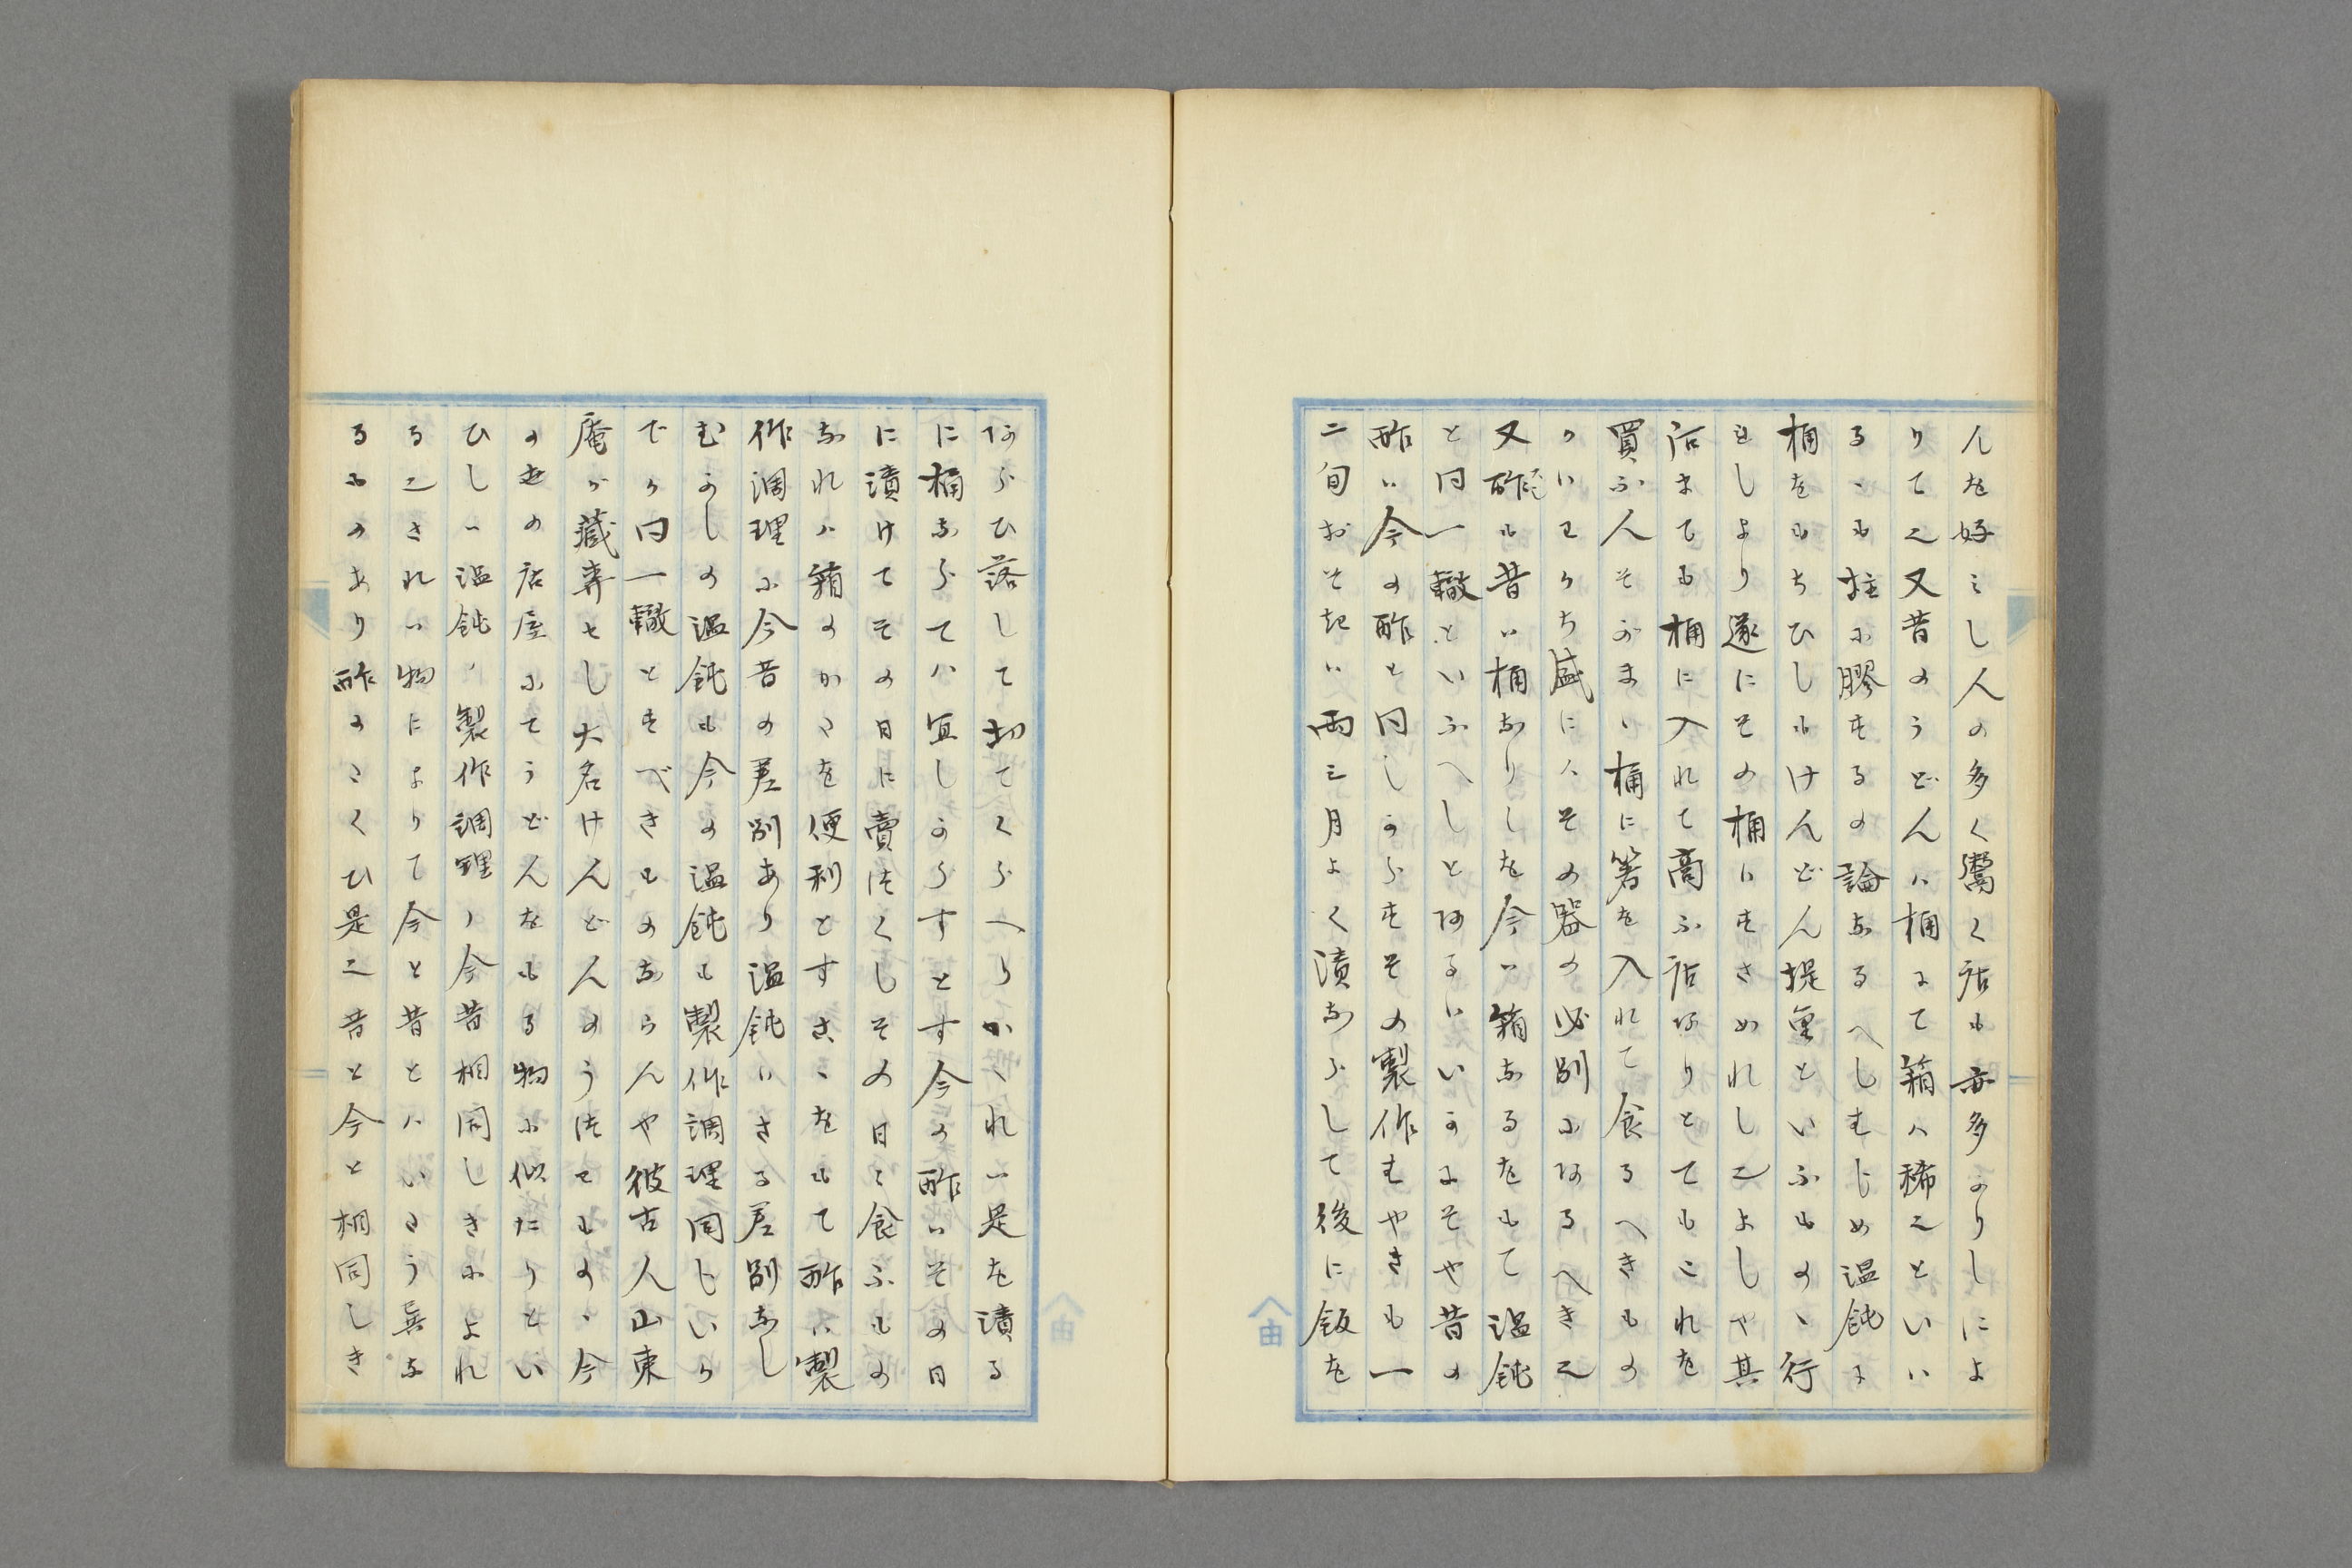 んを好みし人の多く鬻く店も亦多かりしによ
りて也又昔のうどんハ桶にて箱ハ稀也といい
る、も柱に膠するの論なるへしむじめ温飩に
桶をもちひしもけんどん提重といふもの、行
れしより遂にその桶にすさめれし也よしや其
店までも桶に入れて商ふ店なりとてもこれを
買ふ人そがまゝ桶に箸を入れて食るへきもの
かいわかち盛にハその器の必別にあるへき也
又酢も昔ハ桶なりしを今ハ箱なるをもて温飩
と同一轍といふへしとあるハいかにそや昔の
酢ハ今の酢と同しからすその製作むやきも一
二旬おそきハ両三月よく漬ならして後に飯を
はらひ落して扨てくらへりかゝれハ是を漬る
に桶ならてハ宜しからすとす今の酢ハその日
に漬けてその日に賣つくしその日に食ふもの
なれハ箱のかたを便利とすさゝをもて酢ハ製
作調理に今昔の差別あり温飩ハさる差別なし
むかしの温飩も今の温飩も製作調理同じいか
でか同一轍とすべきものならんや彼古人山東
庵が蔵弆せし大名けんどんのうつわもの、今
の世の店屋にてうどんをもる物に似たりとい
ひしハ温飩ノ製作調理ノ今昔相同しきによれ
る也されハ物によりて今と昔とハいたう異な
るものあり酢のたくひ是也昔と今と相同しき